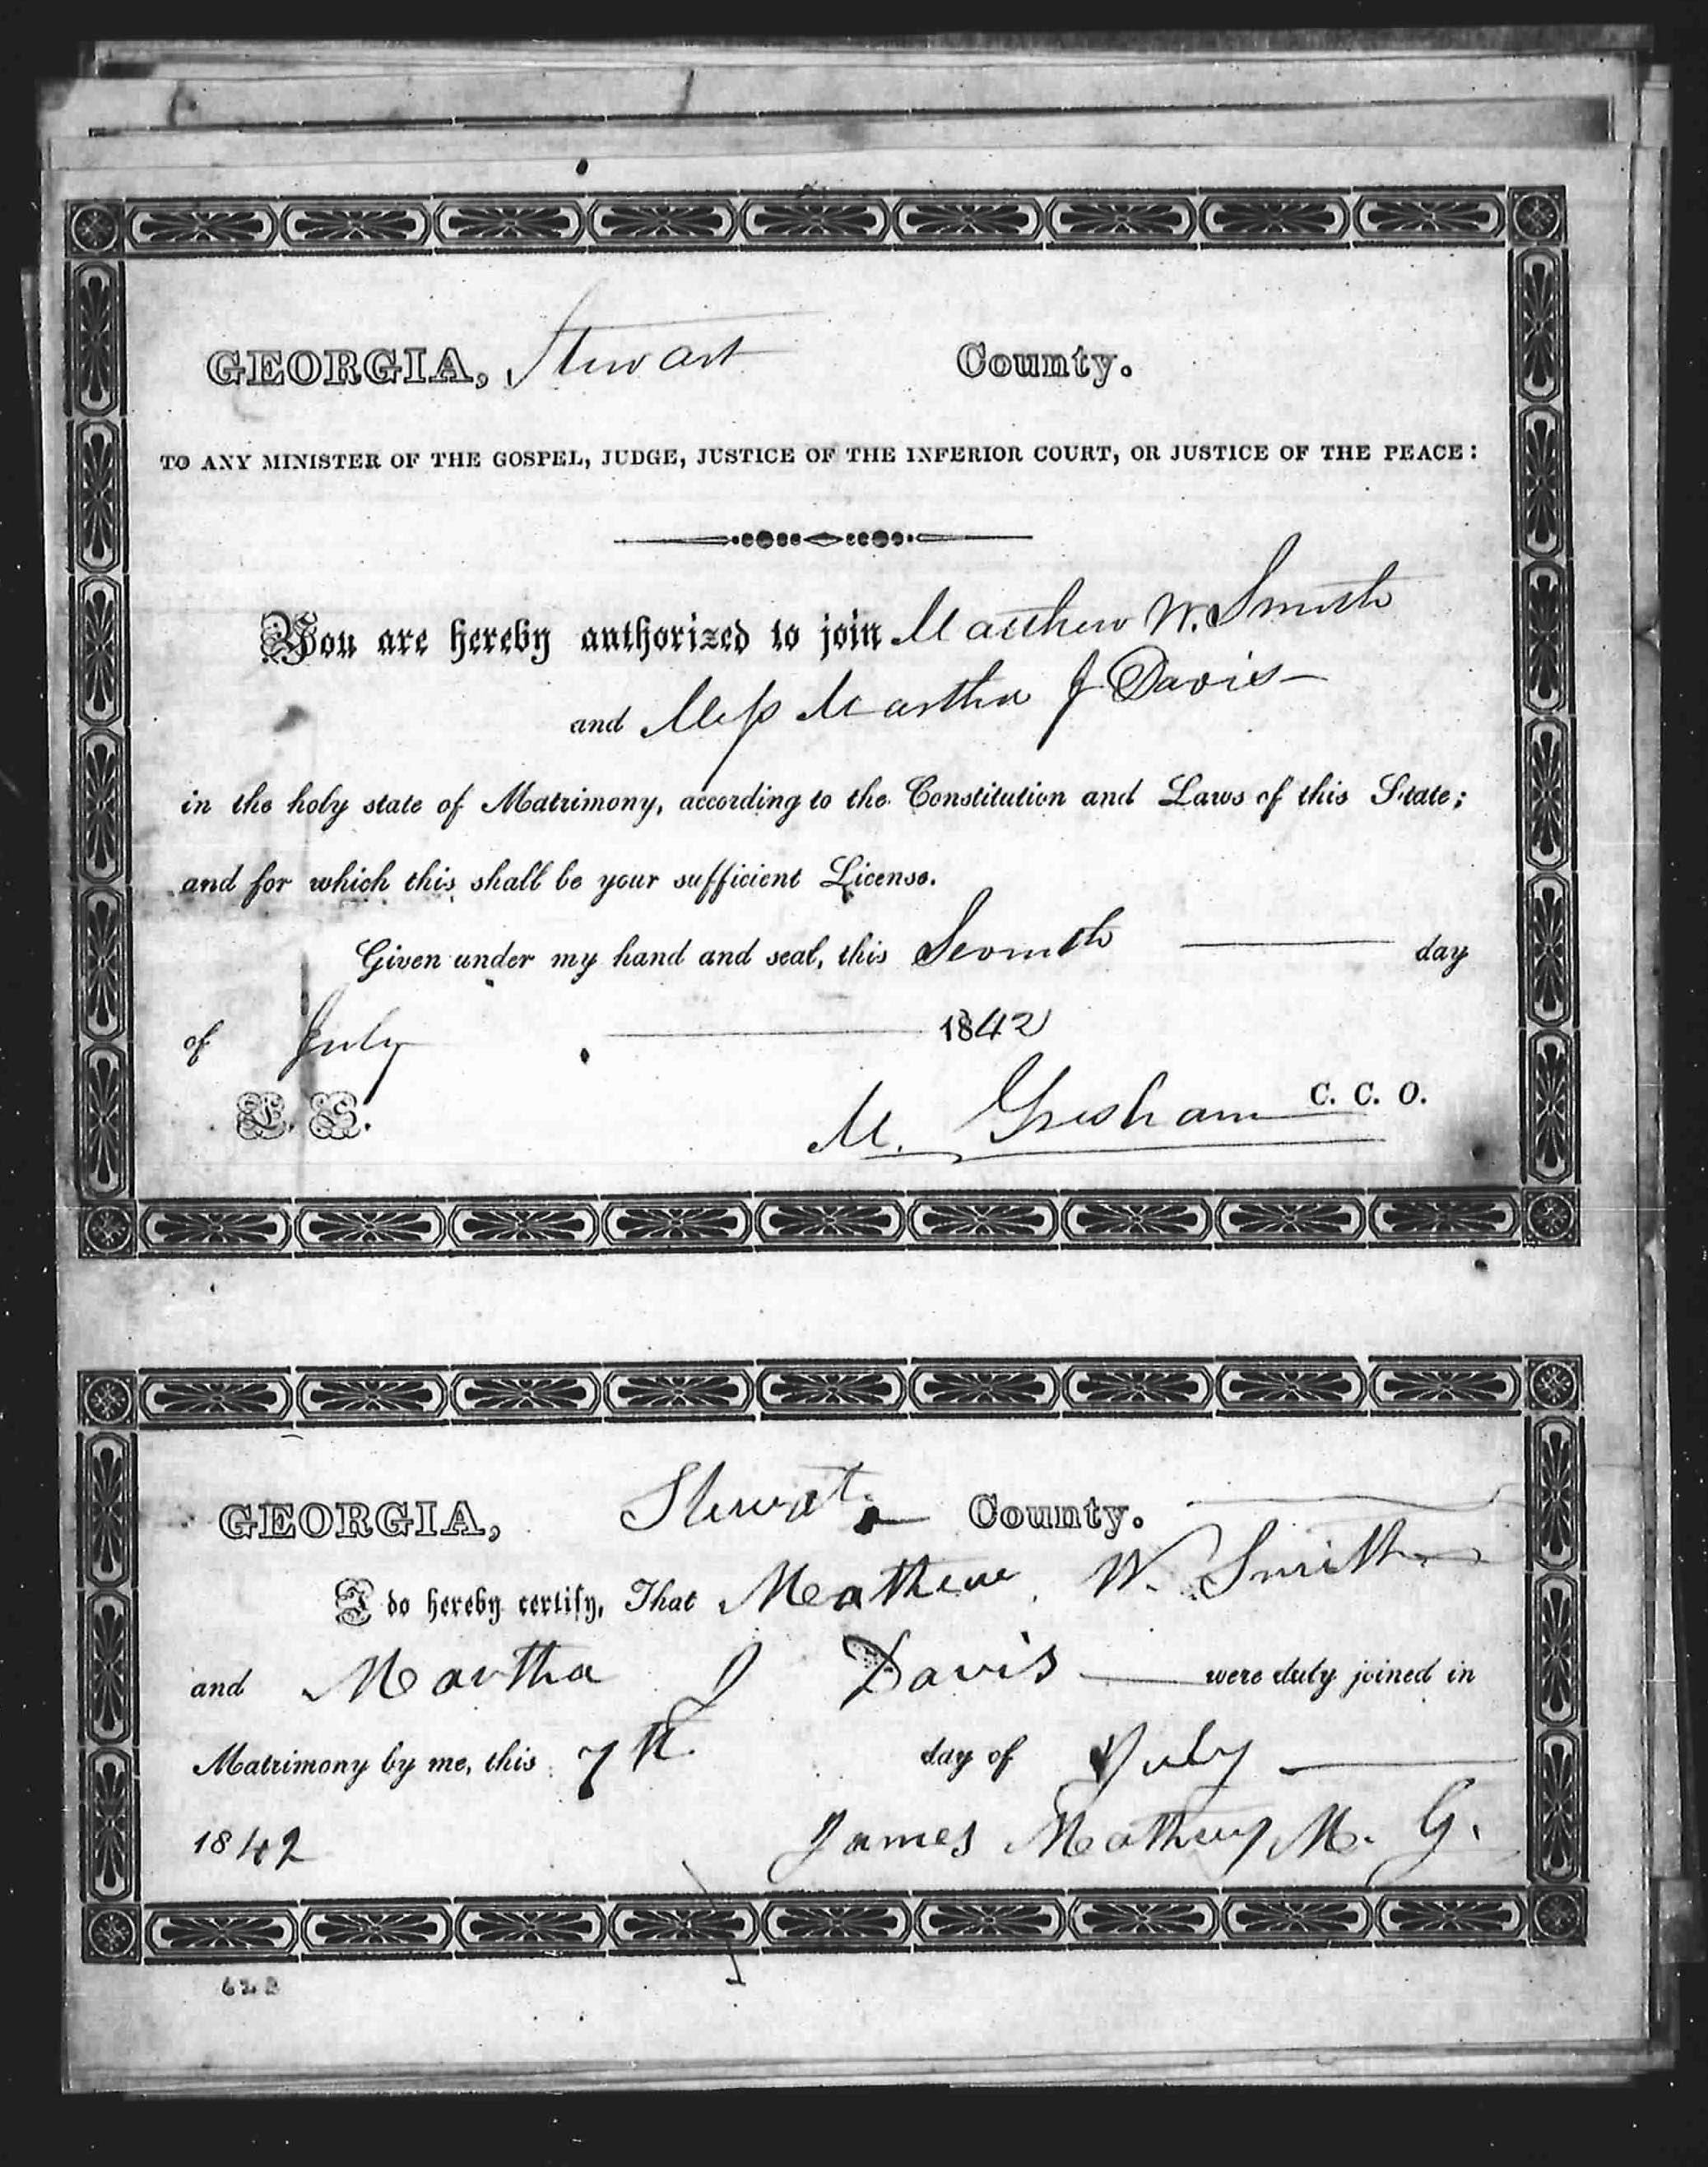 GEORGIA, Stewart County.
TO ANY MINISTER OF THE GOSPEL, JUDGE, JUSTICE OF THE INFERIOR COURT, OR JUSTICE OF THE PEACE:
You are hereby authorized to join Matthew W. Smith
and Miss Martha J Davis
in the holy state of Matrimony, according to the Constitution and Laws of this State;
and for which this shall be your sufficient License.
Given under my hand and seal, this Seventh day
of July 1842
L. S.
M. Gresham C. C. O.
GEORGIA, Stewart County.
I do hereby certify, That Mathew W. Smith
and Martha J Davis were duly joined in
Matrimony by me, this 7th day of July
1842 James Mathews M. G.